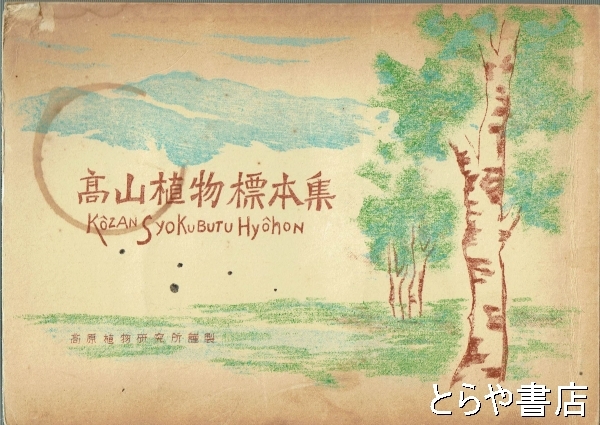 髙山植物標本集
KôZAN SYOKUBUTU HYôHON
高原植物研究所謹製
とらや書店